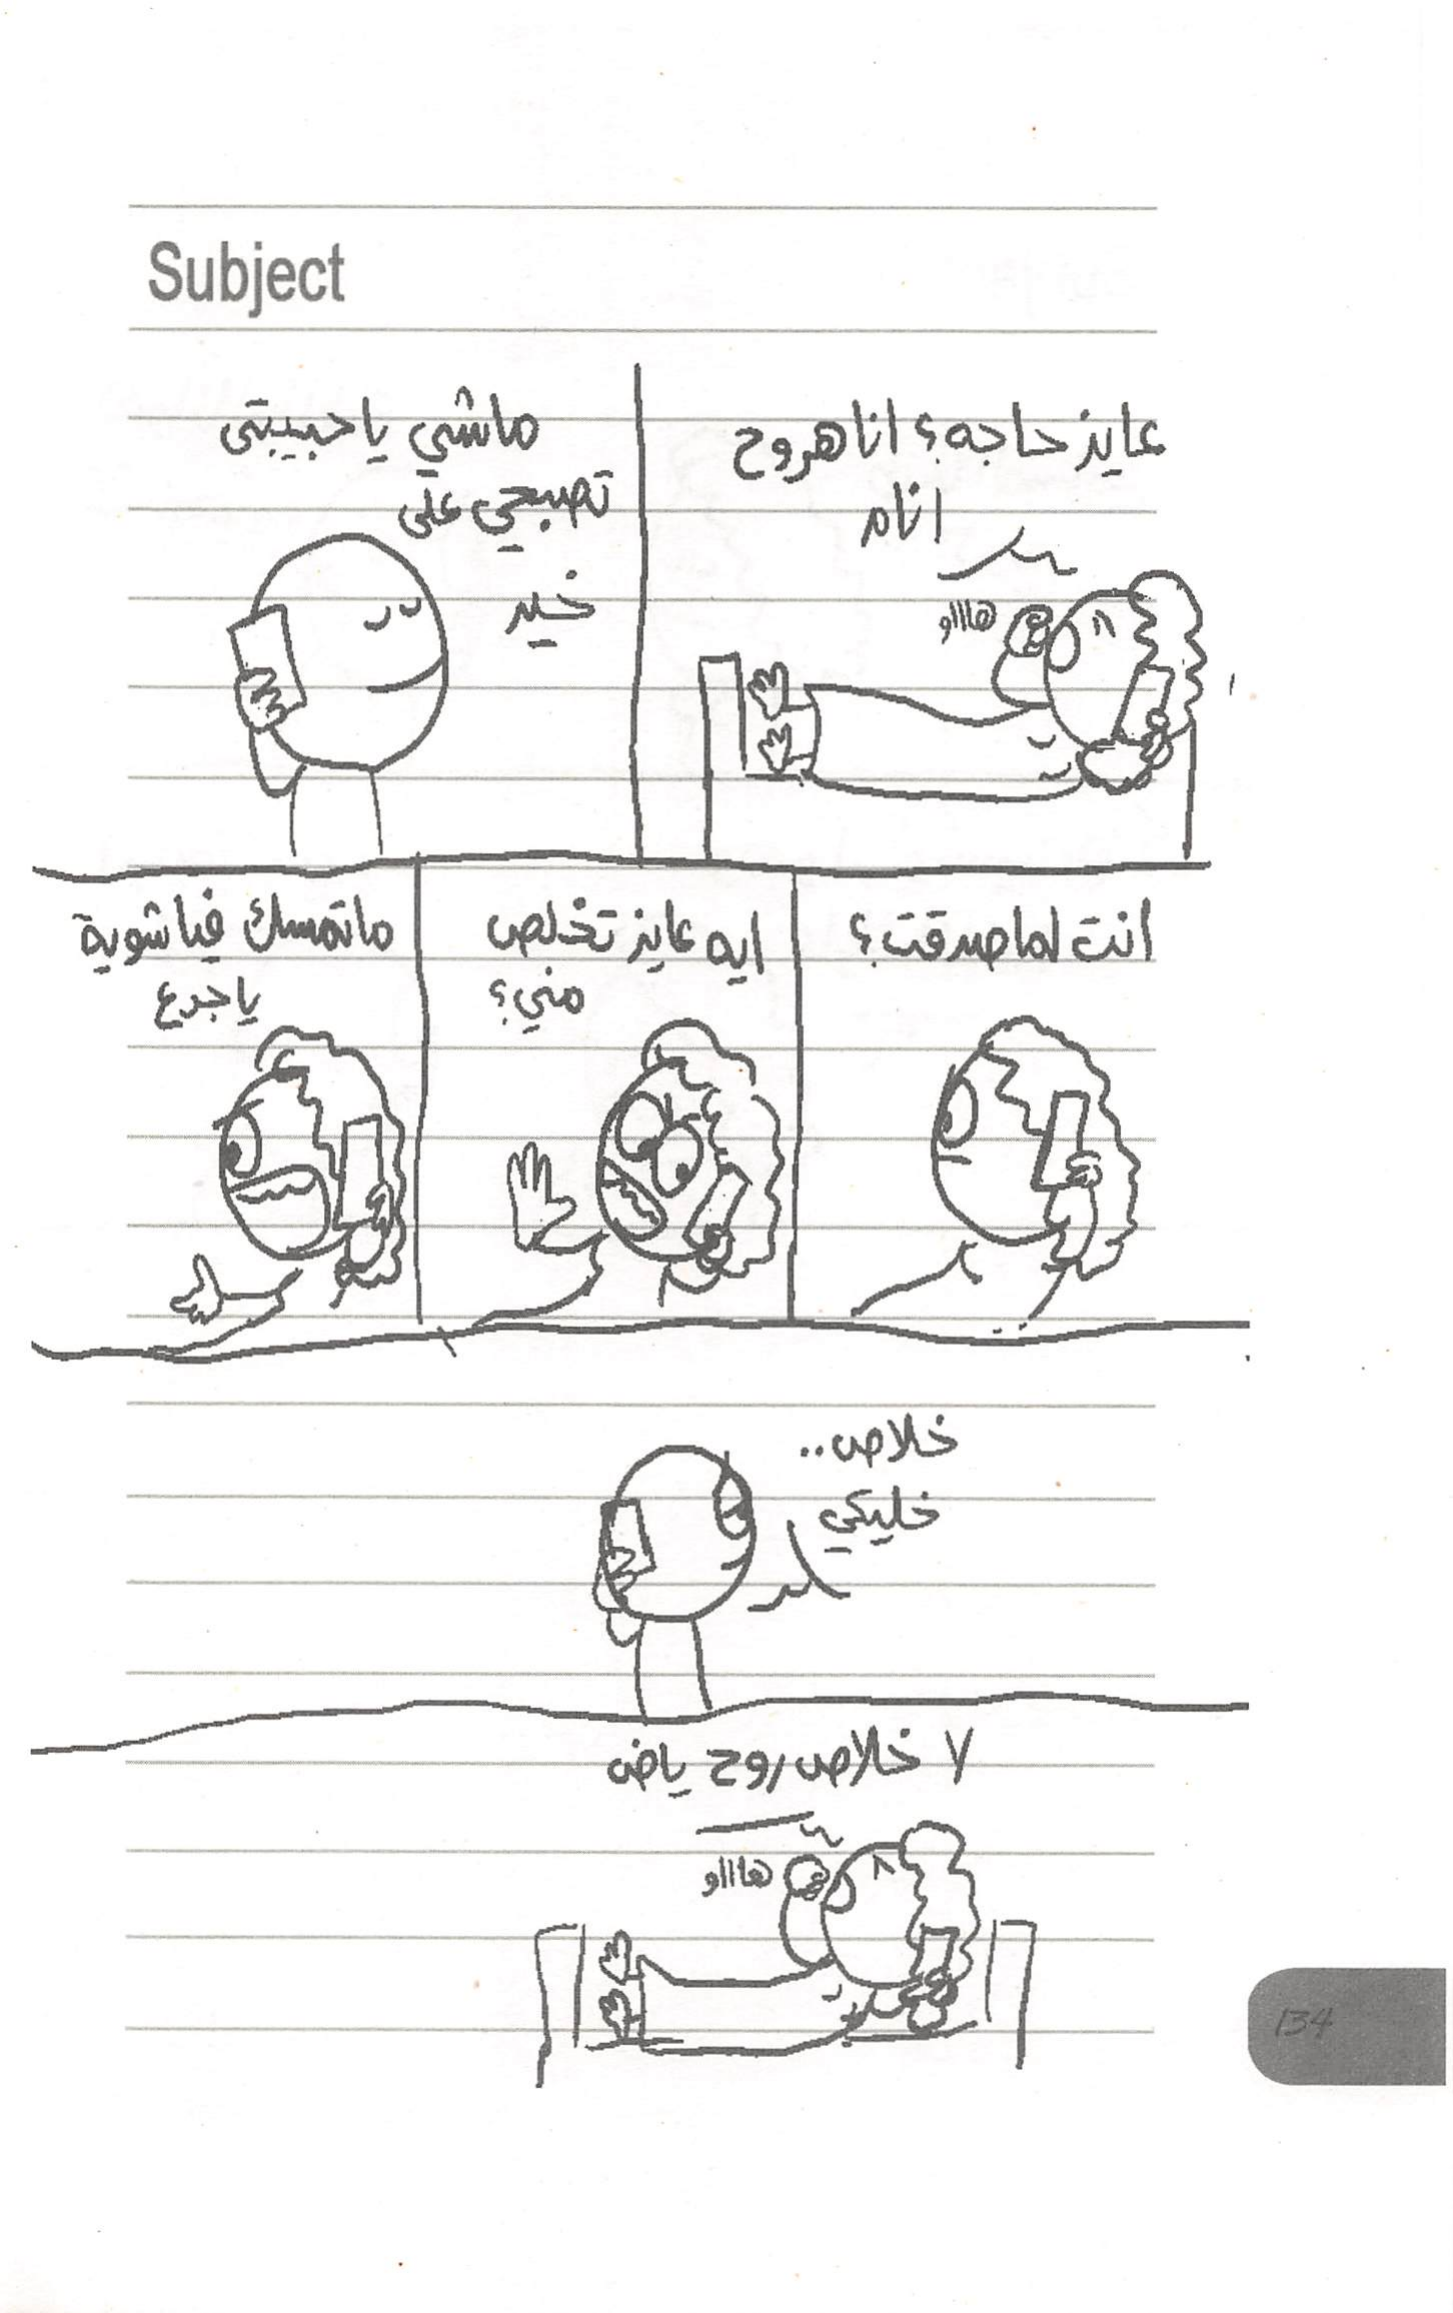 Subject
عايز حاجه؟ انا هروح
انام
هاااو
ماشي ياحبيبتى
تصبحي على
خير
انت لما صدقت؟
ايه عايز تخلص
مني؟
ماتمسك فيا شوية
ياجدع
خلاص..
خليكي
لا خلاص روح ياض
هاااو
134